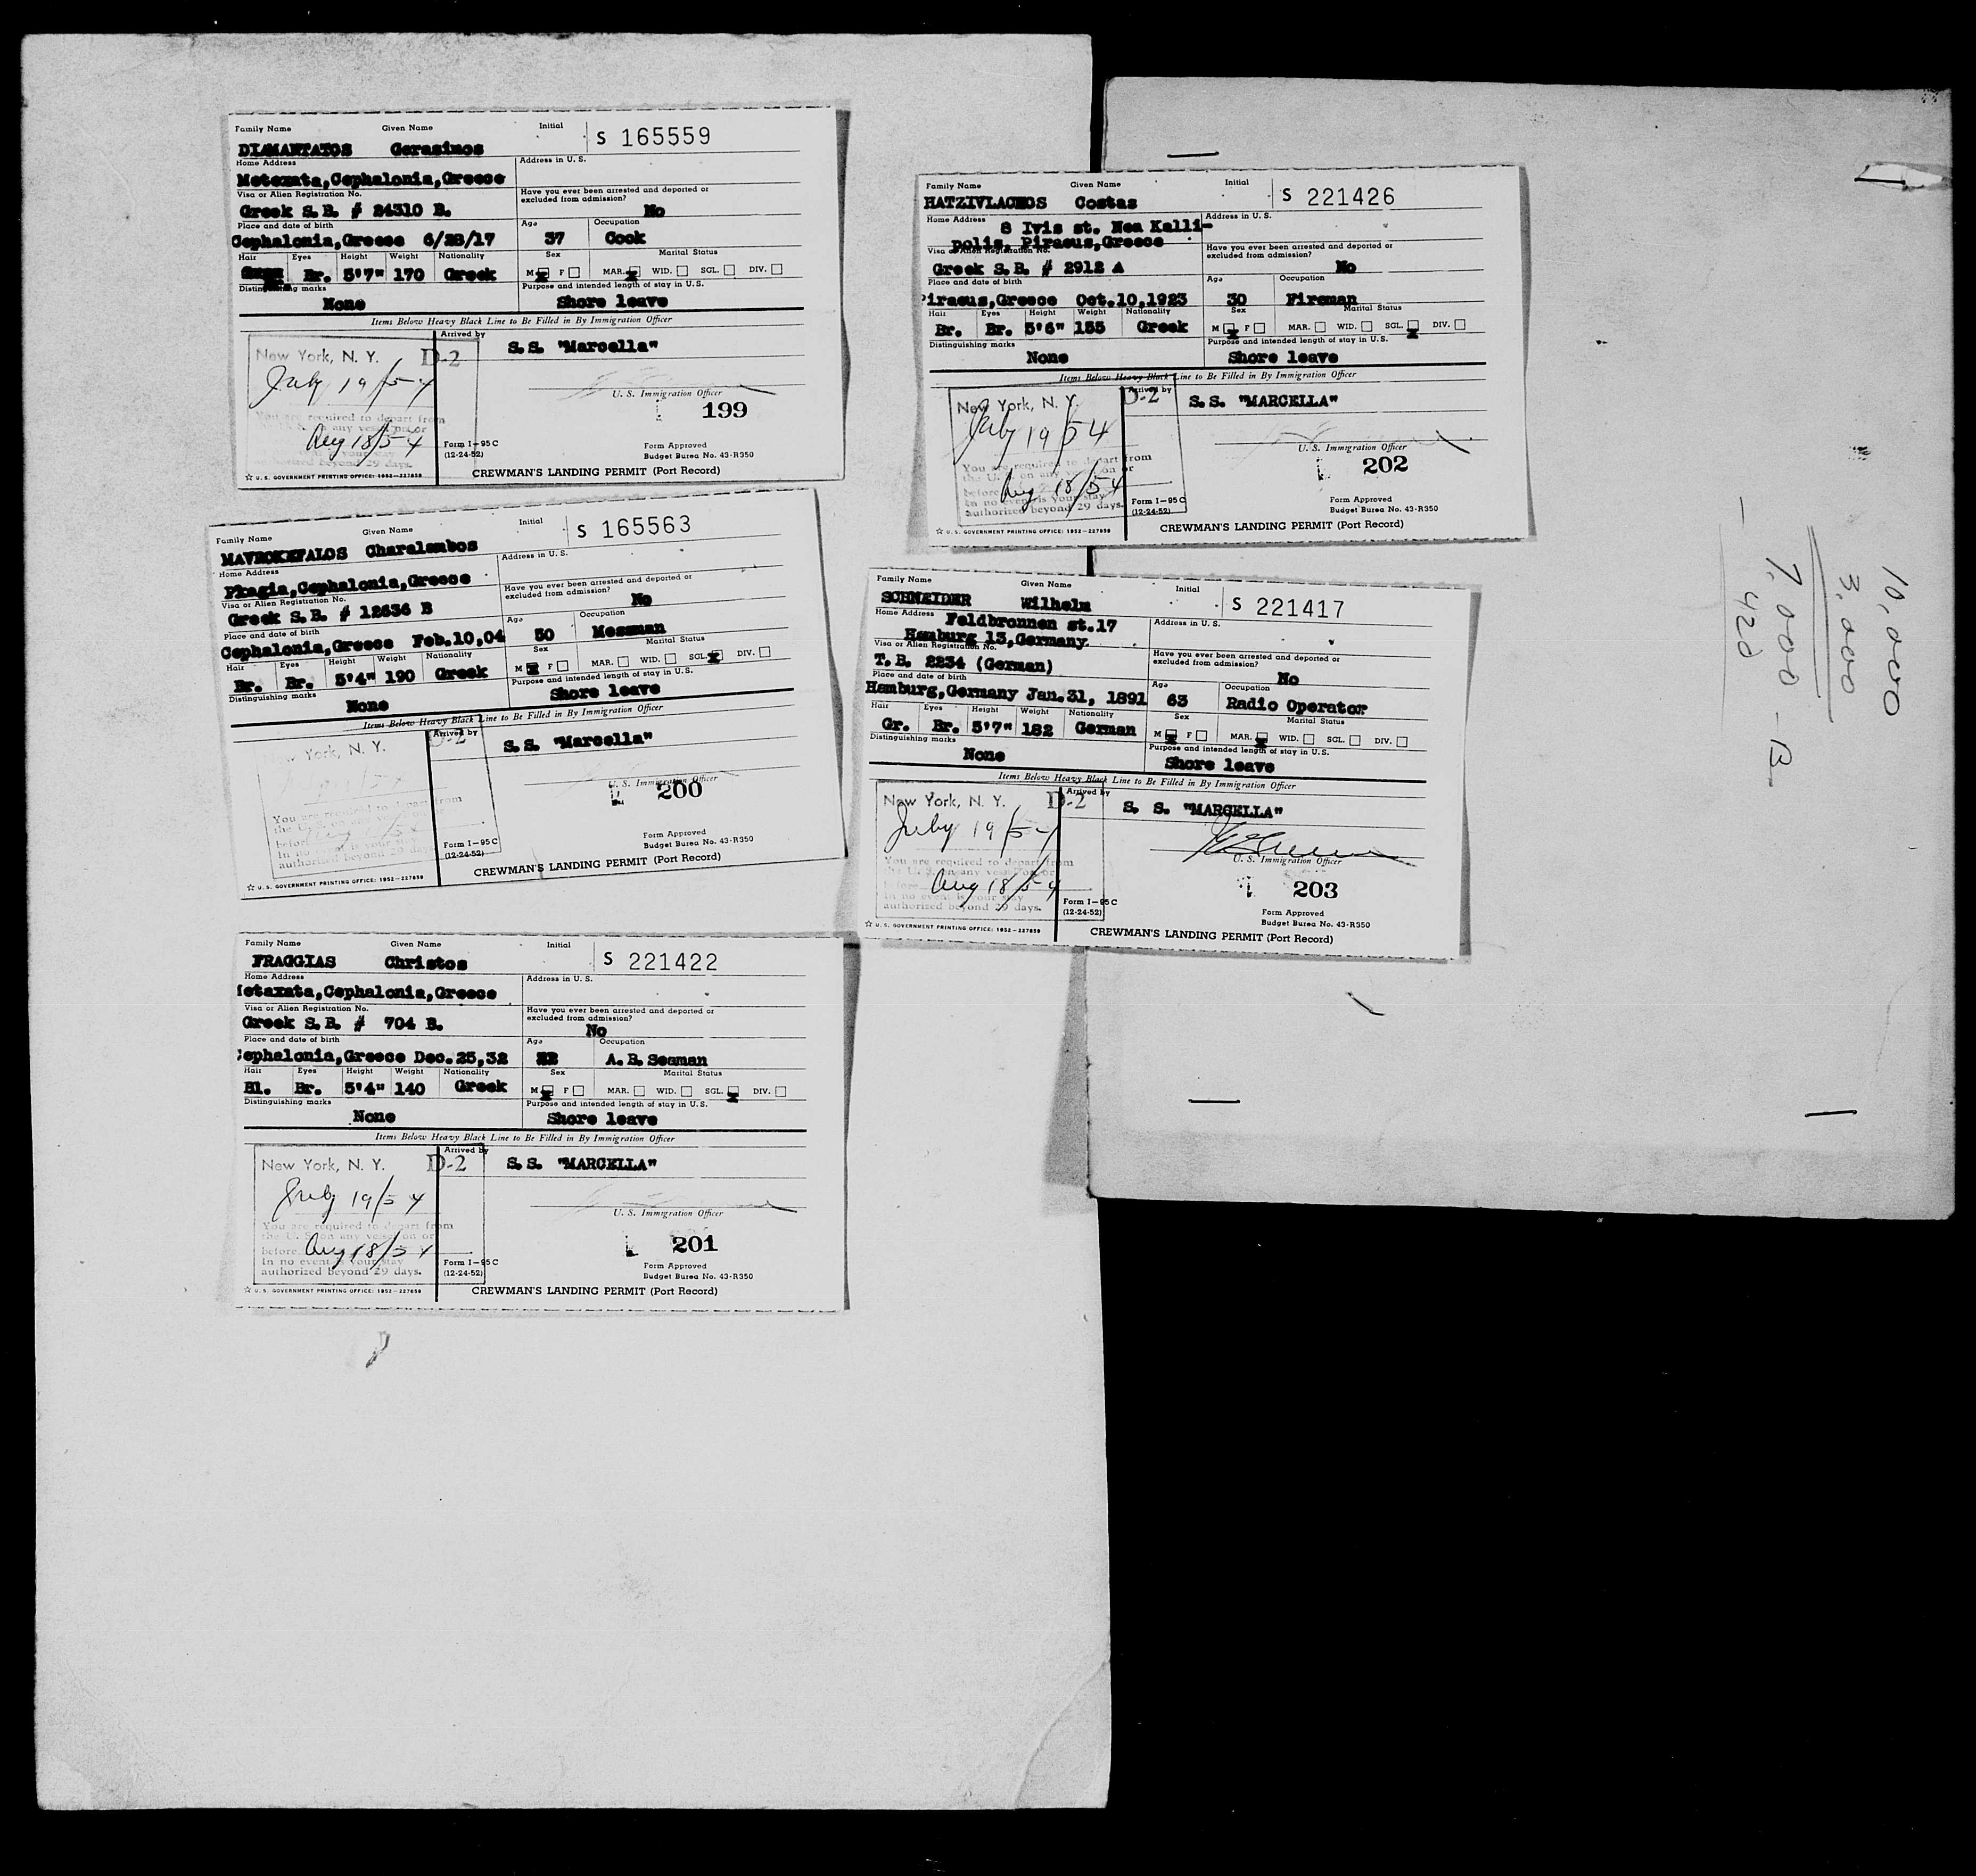 Family Name Given Name Initial S 165559
DIAMANTATOS Gerasimos
Home Address Address in U. S.
Metaxata,Cephalonia,Greece
Visa or Alien Registration No. Have you ever been arrested and deported or
excluded from admission?
Greek S.B. # 24310 B. No
Place and date of birth Age Occupation
Cephalonia,Greece 6/28/17 37 Cook
Hair Eyes Height Weight Nationality Sex Marital Status
Br. 5'7" 170 Greek M F MAR. WID. SGL. DIV.
Distinguishing marks Purpose and intended length of stay in U.S.
None Shore leave
Items Below Heavy Black Line to Be Filled in By Immigration Officer
Arrived by
New York, N. Y. D-2 S.S. "Marcella"
July 19/54
U. S. Immigration Officer
You are required to depart from
199
Aug 18/54
Form I-95C Form Approved
(12-24-52) Budget Bureau No. 43-R350
beyond 29 days.
☆ U. S. GOVERNMENT PRINTING OFFICE: 1952-227859 CREWMAN'S LANDING PERMIT (Port Record)
Family Name Given Name Initial S 165563
MAVROKEFALOS Charalambos
Home Address Address in U. S.
Phagia,Cephalonia,Greece
Visa or Alien Registration No. Have you ever been arrested and deported or
excluded from admission?
Greek S.B. # 12636 B No
Place and date of birth Age Occupation
Cephalonia,Greece Feb.10,04 50 Messman
Hair Eyes Height Weight Nationality Sex Marital Status
Br. Br. 5'4" 190 Greek M F MAR. WID. SGL. DIV.
Distinguishing marks Purpose and intended length of stay in U.S.
None Shore leave
Items Below Heavy Black Line to Be Filled in By Immigration Officer
Arrived by
York, N. Y. D-2 S.S. "Marcella"
U. S. Immigration Officer
200
You are required to depart from
the U. S. on any vessel on or
before
In no event is your stay
authorized beyond 29 days.
Form I-95C Form Approved
(12-24-52) Budget Bureau No. 43-R350
☆ U. S. GOVERNMENT PRINTING OFFICE: 1952-227859 CREWMAN'S LANDING PERMIT (Port Record)
Family Name Given Name Initial S 221422
FRAGGIAS Christos
Home Address Address in U. S.
etaxata,Cephalonia,Greece
Visa or Alien Registration No. Have you ever been arrested and deported or
excluded from admission?
Greek S.B. # 704 B. No
Place and date of birth Age Occupation
ephalonia,Greece Dec.25,32 22 A.B.Seaman
Hair Eyes Height Weight Nationality Sex Marital Status
Bl. Br. 5'4" 140 Greek M F MAR. WID. SGL. DIV.
Distinguishing marks Purpose and intended length of stay in U.S.
None Shore leave
Items Below Heavy Black Line to Be Filled in By Immigration Officer
Arrived by
New York, N. Y. D-2 S.S. "MARCELLA"
July 19/54
U. S. Immigration Officer
You are required to depart from
the U. S. on any vessel on or
before Aug 18/54 201
In no event is your stay
authorized beyond 29 days.
Form I-95C Form Approved
(12-24-52) Budget Bureau No. 43-R350
☆ U. S. GOVERNMENT PRINTING OFFICE: 1952-227859 CREWMAN'S LANDING PERMIT (Port Record)
Family Name Given Name Initial S 221426
HATZIVLACHOS Costas
Home Address Address in U. S.
8 Ivis st. Nea Kalli-
polis, Piraeus,Greece
Visa or Alien Registration No. Have you ever been arrested and deported or
excluded from admission?
Greek S.B. # 2912 A No
Place and date of birth Age Occupation
iraeus,Greece Oct.10,1923 30 Fireman
Hair Eyes Height Weight Nationality Sex Marital Status
Br. Br. 5'6" 155 Greek M F MAR. WID. SGL. DIV.
Distinguishing marks Purpose and intended length of stay in U.S.
None Shore leave
Items Below Heavy Black Line to Be Filled in By Immigration Officer
Arrived by
New York, N. Y. D-2 S.S. "MARCELLA"
July 19/54
U. S. Immigration Officer
You are required to depart from
the U. S. on any vessel on or
202
before Aug 18/54
In no event is your stay
authorized beyond 29 days.
Form I-95C Form Approved
(12-24-52) Budget Bureau No. 43-R350
☆ U. S. GOVERNMENT PRINTING OFFICE: 1952-227859 CREWMAN'S LANDING PERMIT (Port Record)
Family Name Given Name Initial S 221417
SCHNEIDER Wilhelm
Home Address Address in U. S.
Feldbronnen st.17
Hamburg 13,Germany.
Visa or Alien Registration No. Have you ever been arrested and deported or
excluded from admission?
T.B. 2234 (German) No
Place and date of birth Age Occupation
Hamburg,Germany Jan.31, 1891 63 Radio Operator
Hair Eyes Height Weight Nationality Sex Marital Status
Gr. Br. 5'7" 182 German M F MAR. WID. SGL. DIV.
Distinguishing marks Purpose and intended length of stay in U.S.
None Shore leave
Items Below Heavy Black Line to Be Filled in By Immigration Officer
Arrived by
New York, N. Y. D-2 S. S. "MARCELLA"
July 19/54
U. S. Immigration Officer
You are required to depart from
the U. S. on any vessel on or
before Aug 18/54 203
In no event is your stay
authorized beyond 29 days.
Form I-95C Form Approved
(12-24-52) Budget Bureau No. 43-R350
☆ U. S. GOVERNMENT PRINTING OFFICE: 1952-227859 CREWMAN'S LANDING PERMIT (Port Record)
10,000
3,000
7,000 - B
420